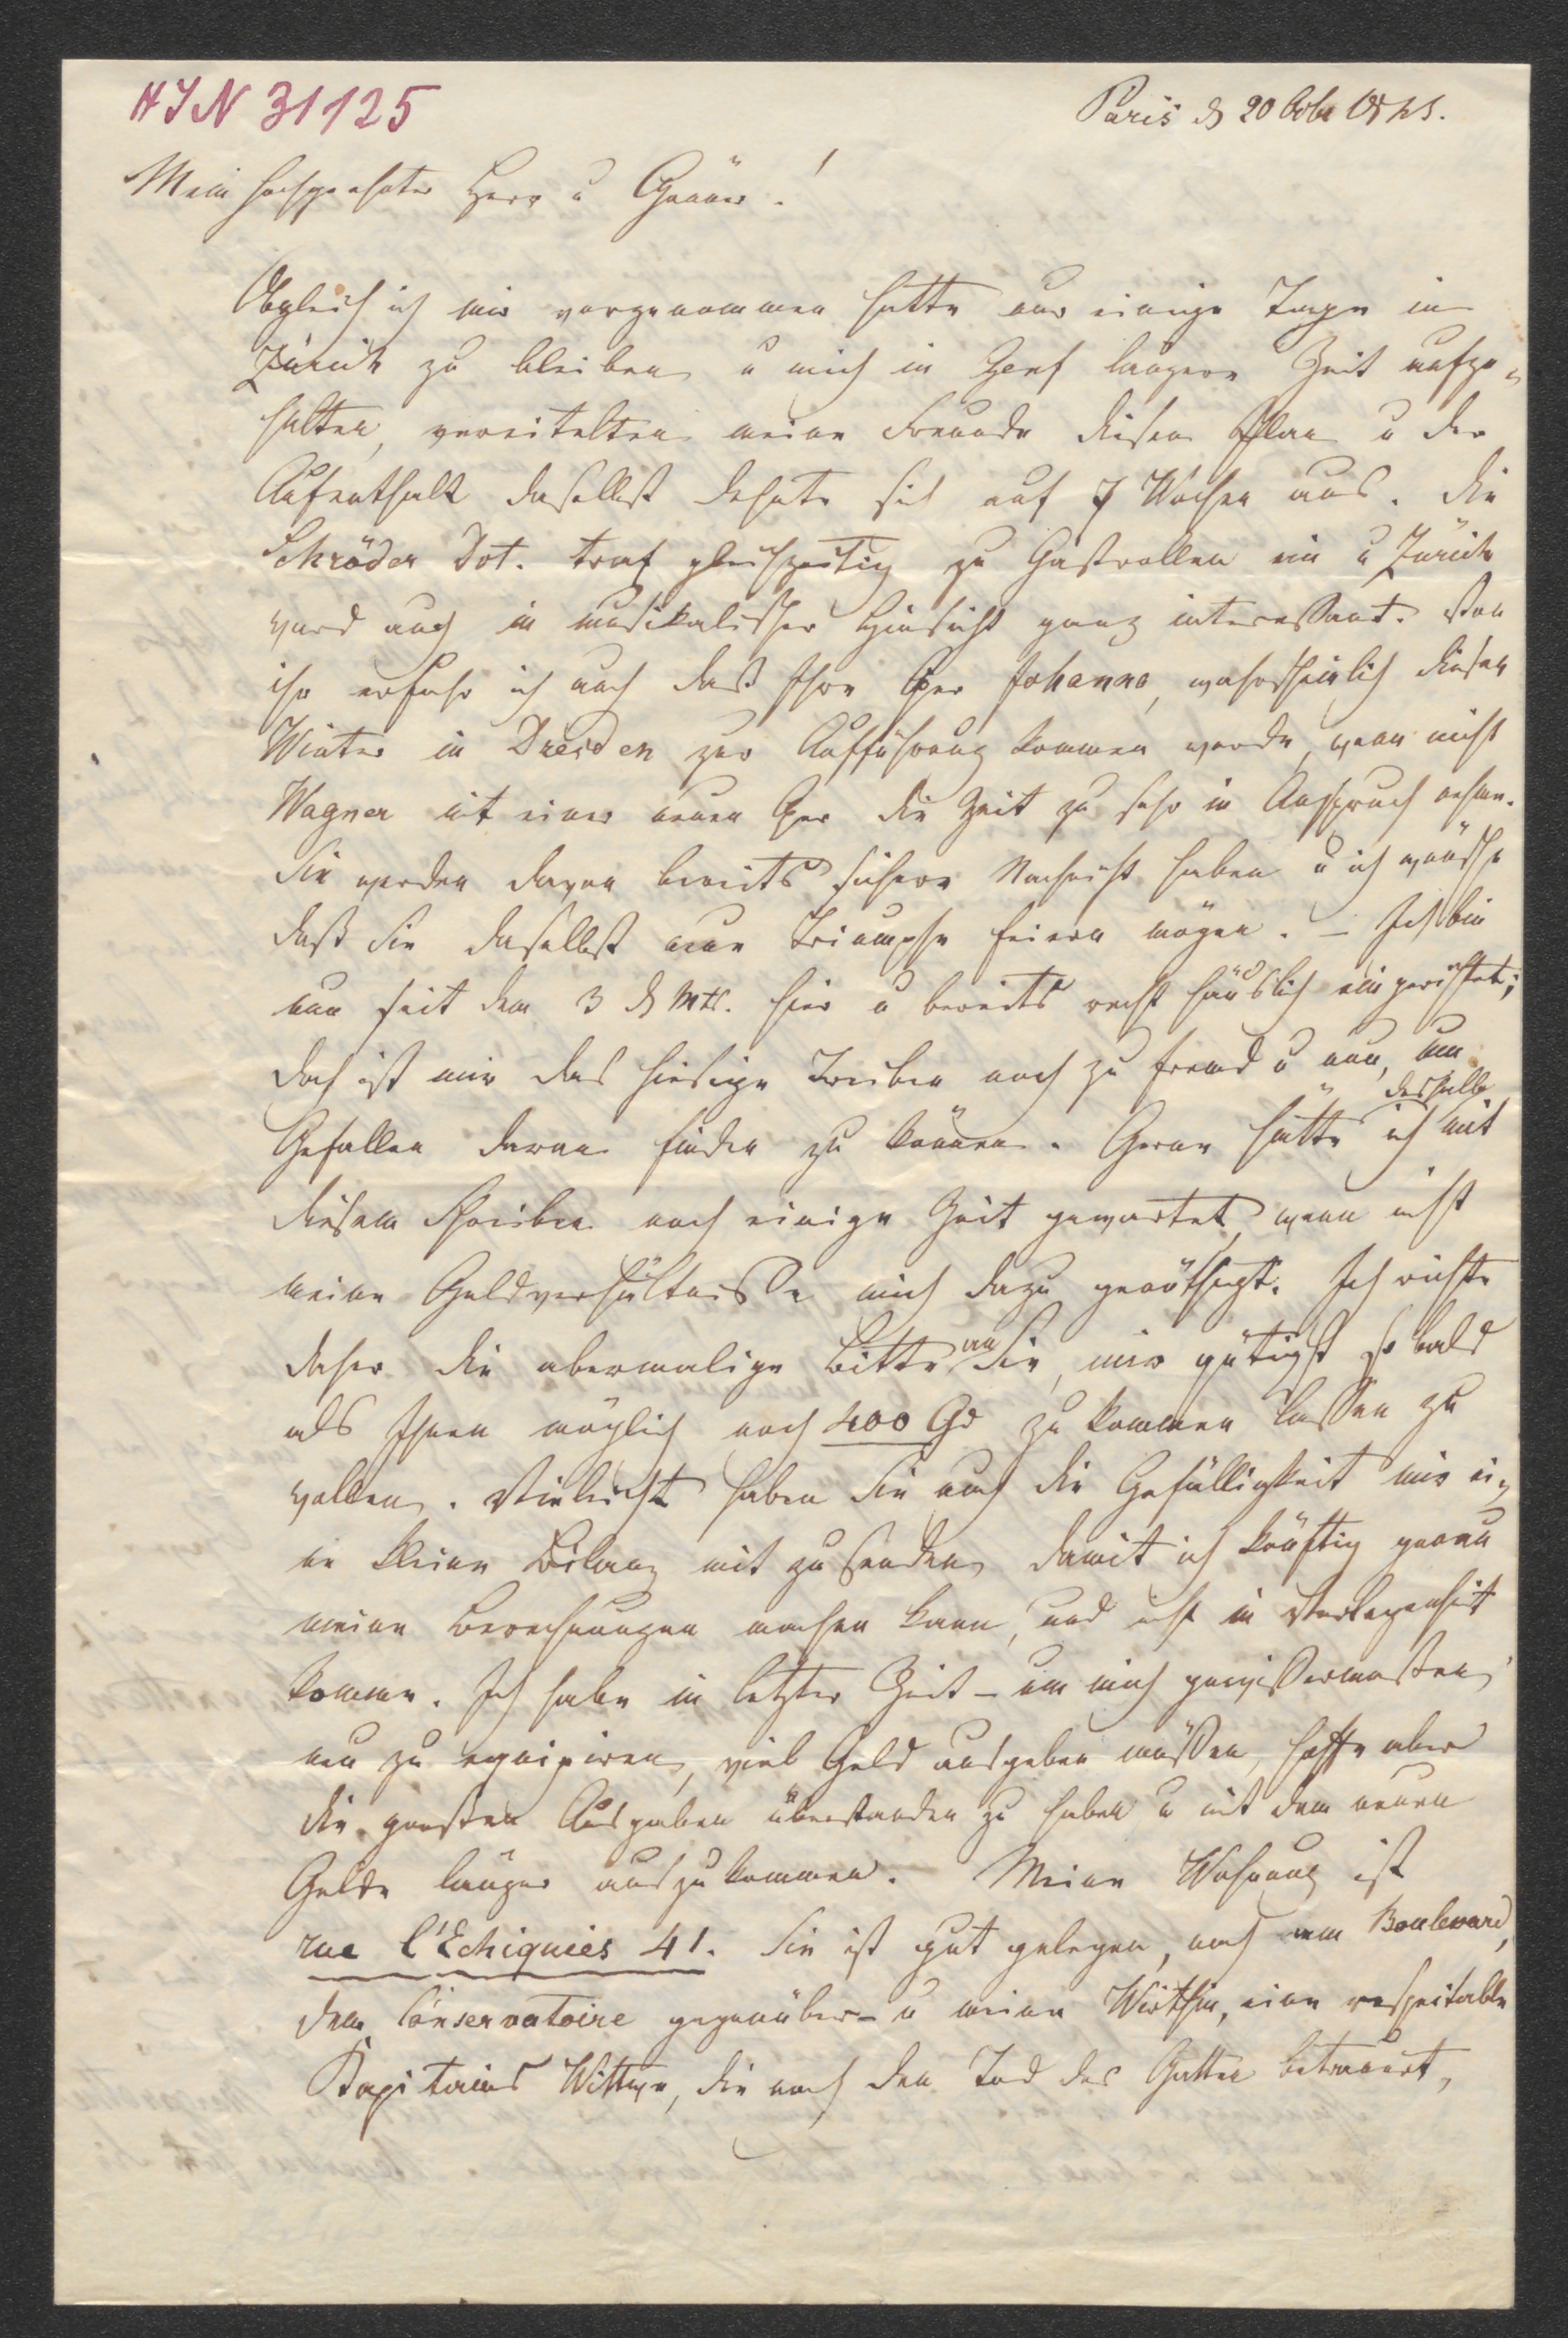 HIN 31125
Paris d 20 Octbr 1845.
Mein hochgeehrter Herr u Gönner!
Obgleich ich mir vorgenommen hatte nur einige Tage in
Zürich zu bleiben u mich in Genf längere Zeit aufzu-
halten, vereitelten meine Freunde diesen Plan u der
Aufenthalt daselbst dehnte sich auf 7 Wochen aus. Die
Schröder Dvt. traf gleichzeitig zu Gastrollen ein u Zürich
ward auch in musikalischer Hinsicht ganz interessant. Von
ihr erfuhr ich auch daß Ihre Oper Johanna, wahrscheinlich diesen
Winter in Dresden zur Aufführung kommen werde, wenn nicht
Wagner mit einer neuen Oper die Zeit zu sehr in Anspruch nehme.
Sie werden davon bereits sichere Nachricht haben u ich wünsche
daß Sie daselbst neue Triumphe feiern mögen. – Ich bin
nun seit dem 3 d Mts. hier u bereits recht häuslich eingerichtet;
doch ist mir das hiesige Treiben noch zu fremd u neu, um
Gefallen daran finden zu können. Gerne hätte ich deshalb mit
diesem Schreiben noch einige Zeit gewartet, wenn nicht
meine Geldverhältnisse mich dazu genöthigt. Ich richte
daher die abermalige Bitte an Sie, mir gütigst so bald
als Ihnen möglich noch 400 Gd zu kommen lassen zu
wollen. Vielleicht haben Sie auch die Gefälligkeit mir ei-
ne kleine Bilanz mit zu senden, damit ich künftig genau
meine Berechnungen machen kann, und nicht in Verlegenheit
komme. Ich habe in letzter Zeit – um mich gewissermassen
neu zu equipiren, viel Geld ausgeben müssen, hoffe aber
die großen Ausgaben überstanden zu haben u mit dem neuen
Gelde länger auszukommen. Meine Wohnung ist
rue l'Echiquier 41. Sie ist gut gelegen, nah am Boulevard,
dem Conservatoire gegenüber – u meine Wirthin, eine respectable
Kapitains Wittwe, die noch den Tod des Gatten betrauert,